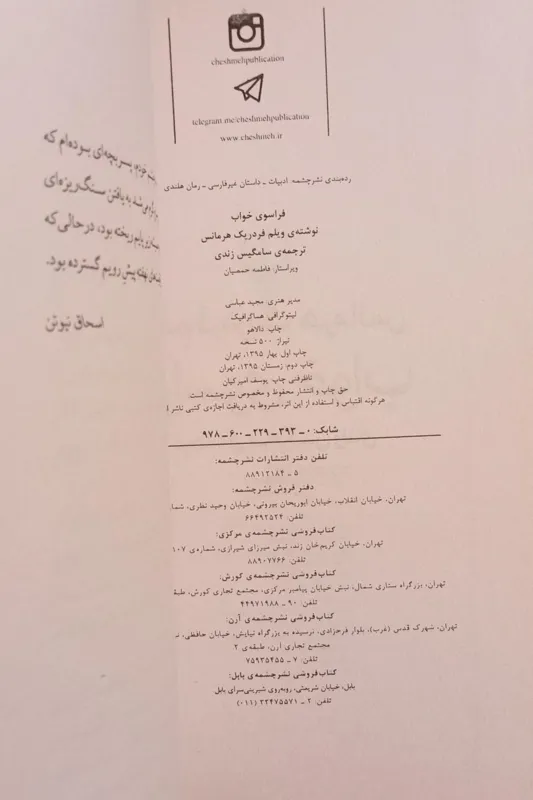 cheshmehpublication
telegram.me/cheshmehpublication
www.cheshmeh.ir
رده‌بندی نشرچشمه: ادبیات ـ داستان غیرفارسی ـ رمان هلندی
فراسوی خواب
نوشته‌ی ویلم فردریک هرمانس
ترجمه‌ی سامگیس زندی
ویراستار: فاطمه حمصیان
مدیر هنری: مجید عباسی
لیتوگرافی: هماگرافیک
چاپ: دالاهو
تیراژ: ۵۰۰ نسخه
چاپ اول: بهار ۱۳۹۵، تهران
چاپ دوم: زمستان ۱۳۹۵، تهران
ناظر فنی چاپ: یوسف امیرکیان
حق چاپ و انتشار محفوظ و مخصوص نشرچشمه است
هرگونه اقتباس و استفاده از این اثر، مشروط به دریافت اجازه‌ی کتبی ناشر ا
شابک: ۰ ـ ۳۹۳ ـ ۲۲۹ ـ ۶۰۰ ـ ۹۷۸
تلفن دفتر انتشارات نشرچشمه:
۵ ـ ۸۸۹۱۲۱۸۴
دفتر فروش نشرچشمه:
تهران، خیابان انقلاب، خیابان ابوریحان بیرونی، خیابان وحید نظری، شما
تلفن: ۶۶۴۹۲۵۲۴
کتاب‌فروشی نشرچشمه‌ی مرکزی:
تهران، خیابان کریم‌خان زند، نبش میرزای شیرازی، شماره‌ی ۱۰۷
تلفن: ۸۸۹۰۷۷۶۶
کتاب‌فروشی نشرچشمه‌ی کورش:
تهران، بزرگراه ستاری شمال، نبش خیابان پیامبر مرکزی، مجتمع تجاری کورش، طبقه
تلفن: ۹۰ ـ ۴۴۹۷۱۹۸۸
کتاب‌فروشی نشرچشمه‌ی آرن:
تهران، شهرک قدس (غرب)، بلوار فرحزادی، نرسیده به بزرگراه نیایش، خیابان حافظی، نـ
مجتمع تجاری آرن، طبقه‌ی ۲
تلفن: ۷ ـ ۷۵۹۳۵۴۵۵
کتاب‌فروشی نشرچشمه‌ی بابل:
بابل، خیابان شریعتی، روبه‌روی شیرینی‌سرای بابل
تلفن: ۲ ـ ۳۲۴۷۵۵۷۱ (۰۱۱)
پسربچه‌ای بوده‌ام که
به یافتن سنگ‌ریزه‌ای
ریخته بود، درحالی‌که
پیش رویم گسترده بود.
اسحاق نیوتن